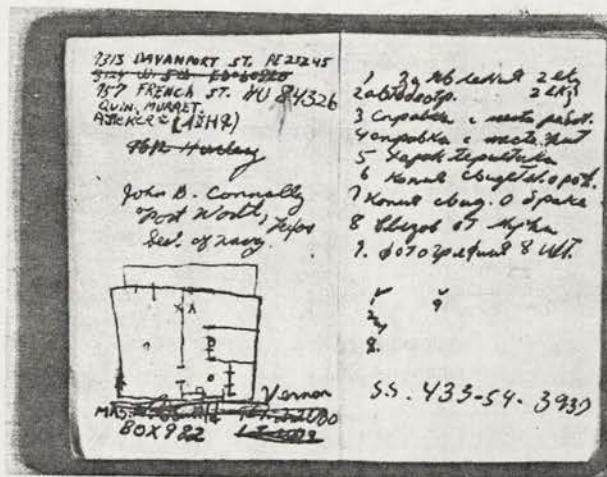 7313 DAVANPORT ST. PE23245
757 FRENCH ST. HU 84326
MURRET.
John B. Connally
Fort Worth, Texas
Sec. of navy.
Vernon
MRS.
BOX 982
1 Заявления 2 екз
2 автобиогр. 2 екз
3 Справка с места работ.
4 справка с места жит
5 Характеристика
6 Копия свидетел. о рож.
7 Копия свид. о браке
8 Вызов от мужа
9. фотография 8 шт.
9
8.
S.S. 433-54-3937